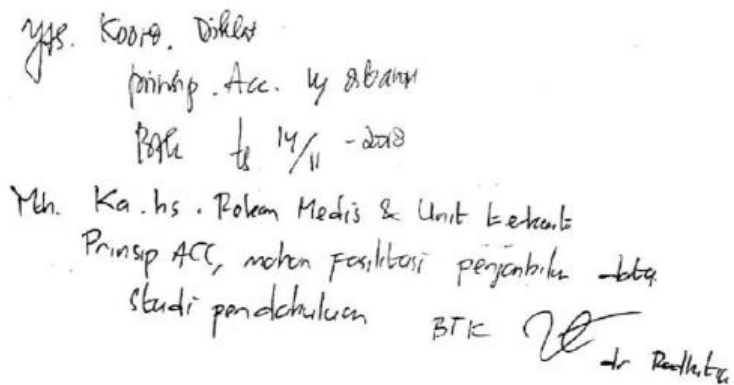 Yts. Koord. Diklat
prinsip. Acc. dibantu
14/11 - 2018
Mh. Ka. Ins. Rekam Medis & Unit terkait
Prinsip ACC, mohon fasilitasi pengambilan data
Studi pendahuluan BTK
dr